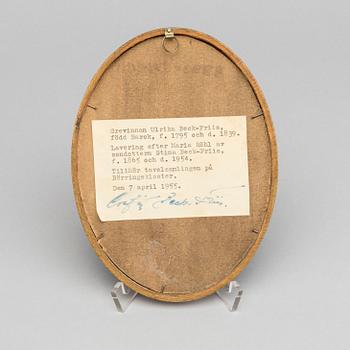 Grevinnan Ulrika Beck-Friis,
född Barck, f. 1795 och d. 1839.
Lavering efter Maria Röhl av
sondottern Stina Beck-Friis,
f. 1865 och d. 1954.
Tillhör tavelsamlingen på
Börringekloster.
Den 7 april 1955.
Beck-Friis.